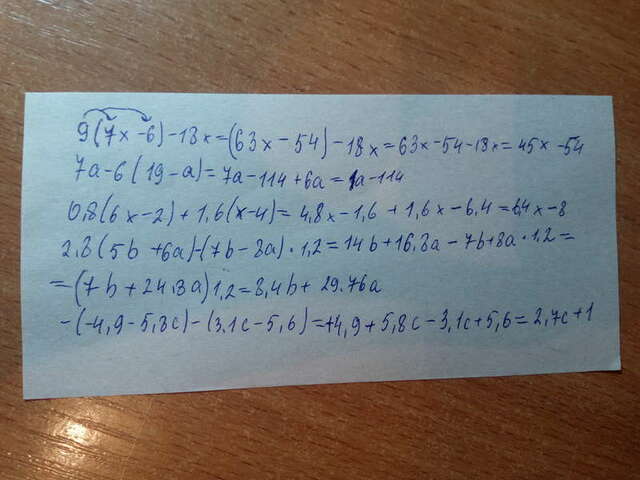 9(7x-6)-18x=(63x-54)-18x=63x-54-18x=45x-54
7a-6(19-a)=7a-114+6a=1a-114
0,8(6x-2)+1,6(x-4)=4,8x-1,6+1,6x-6,4=6,4x-8
2,8(5b+6a)-(7b-8a)·1,2=14b+16,8a-7b+8a·1,2=
=(7b+24,8a)1,2=8,4b+29.76a
-(-4,9-5,8c)-(3,1c-5,6)=+4,9+5,8c-3,1c+5,6=2,7c+1